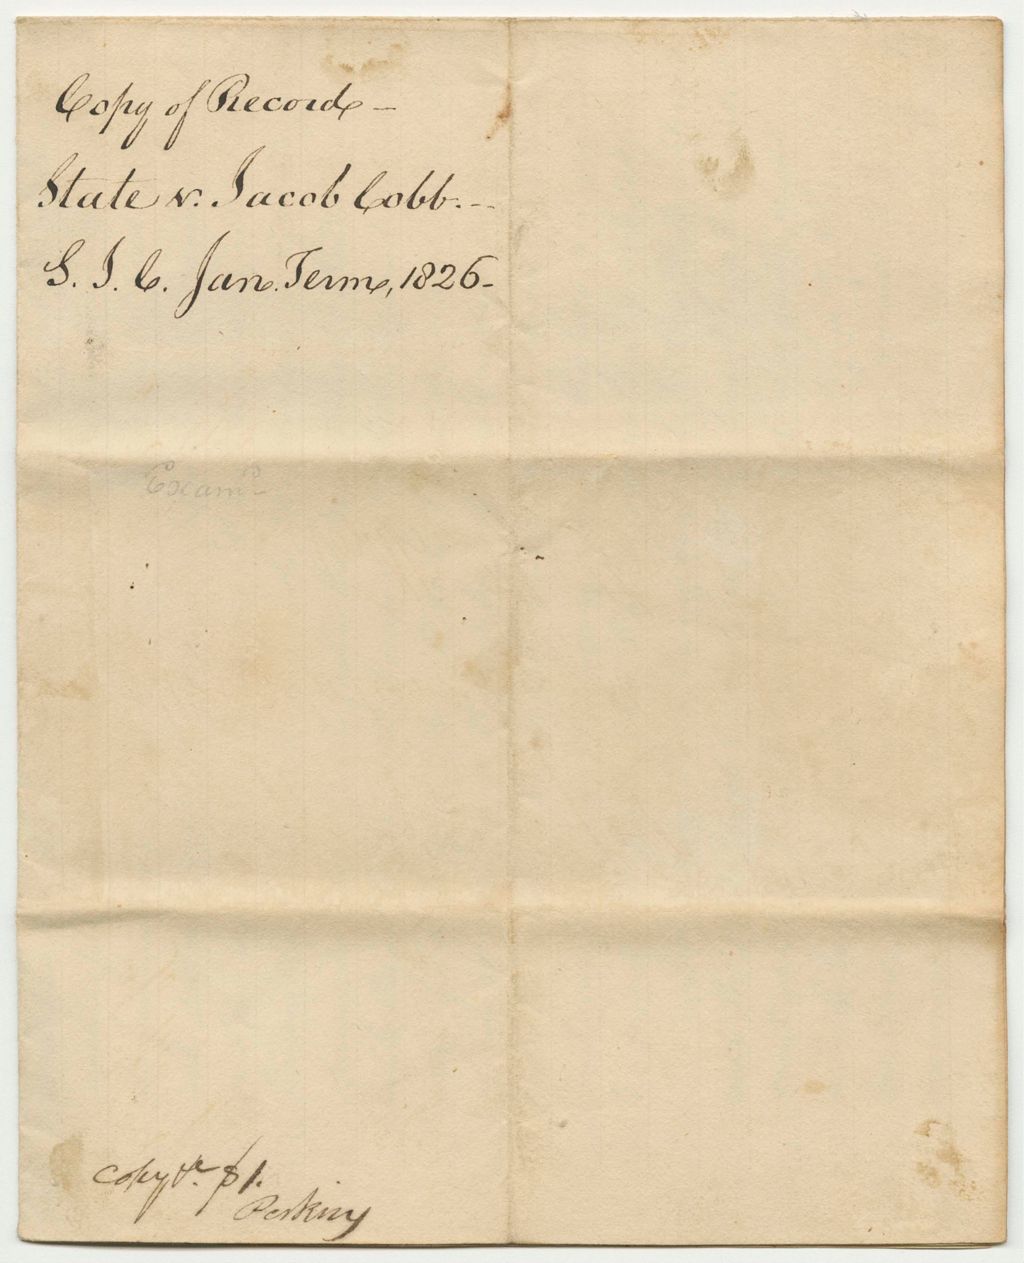 Copy of Record –
State v. Jacob Cobb. –
S. J. C. Jan. Term, 1826 –
Exam^d –
copy &c. $1.
Perkins